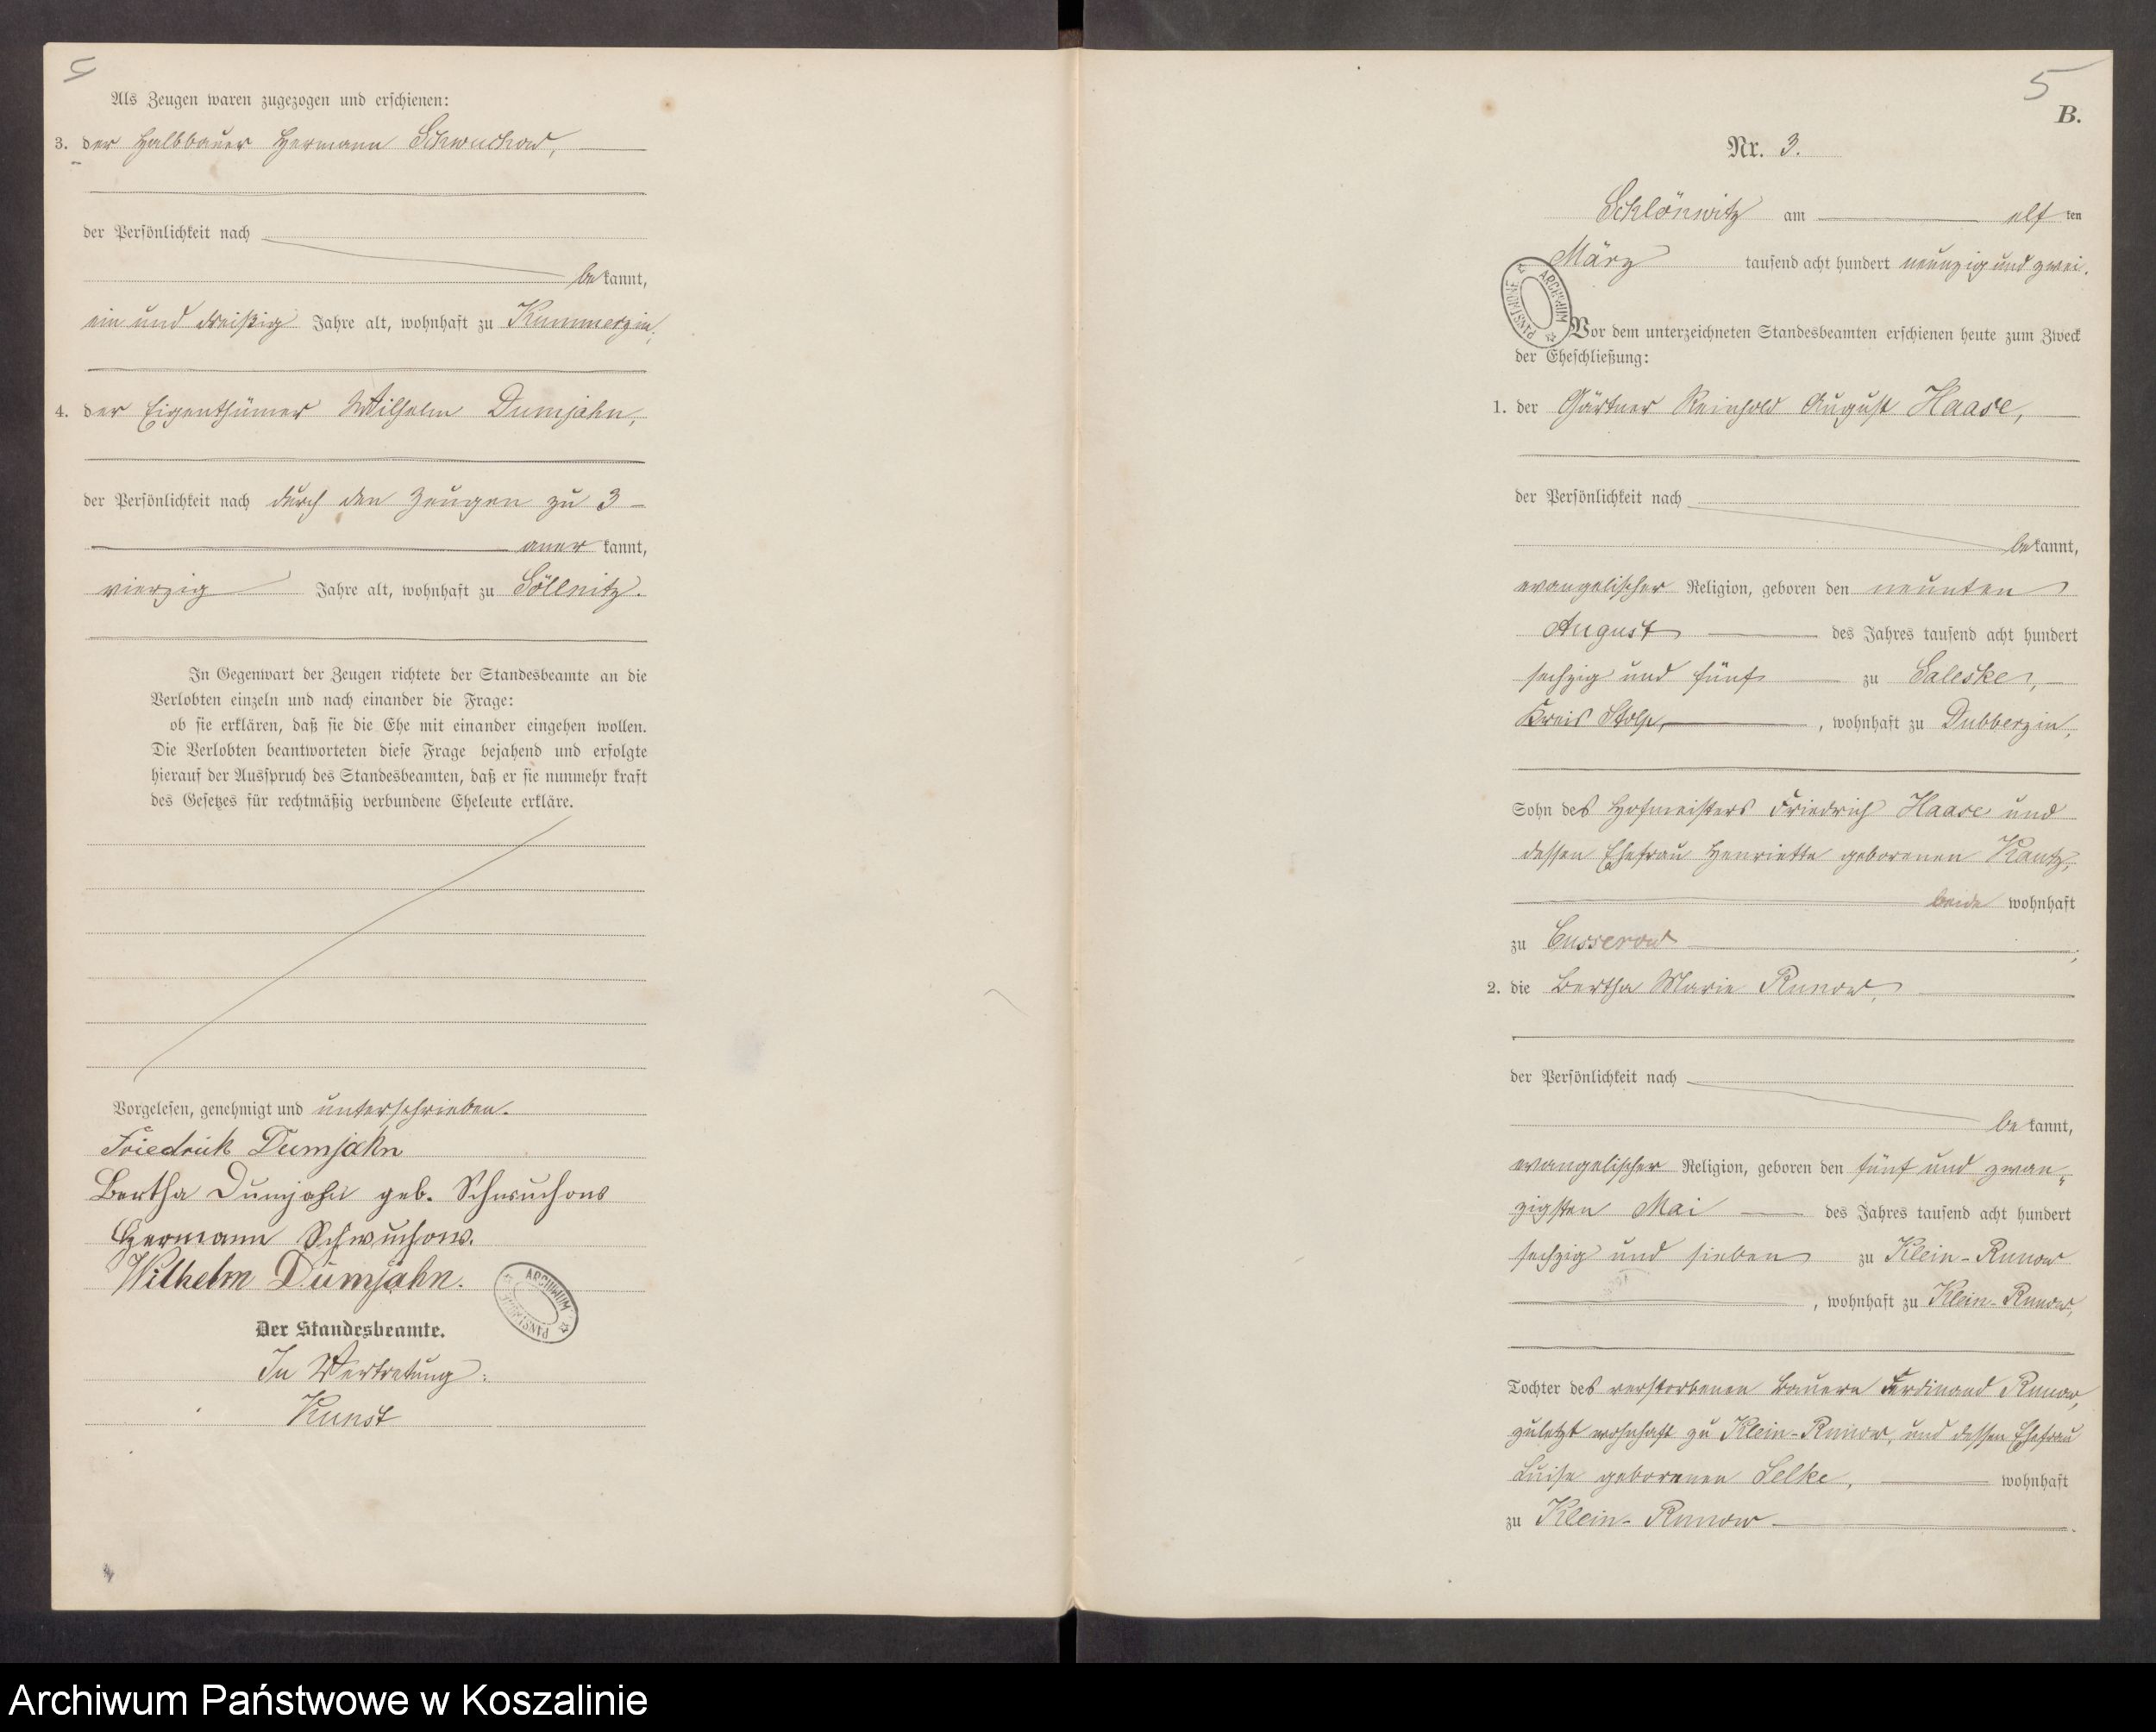 Als Zeugen waren zugezogen und erschienen:
3. der Halbbauer Hermann Schwuchow,
der Persönlichkeit nach
bekannt,
ein und dreißig Jahre alt, wohnhaft zu Kummerzin;
4. der Eigenthümer Wilhelm Dumjahn,
der Persönlichkeit nach durch den Zeugen zu 3
anerkannt,
vierzig Jahre alt, wohnhaft zu Söllnitz.
In Gegenwart der Zeugen richtete der Standesbeamte an die
Verlobten einzeln und nach einander die Frage:
ob sie erklären, daß sie die Ehe mit einander eingehen wollen.
Die Verlobten beantworteten diese Frage bejahend und erfolgte
hierauf der Ausspruch des Standesbeamten, daß er sie nunmehr kraft
des Gesetzes für rechtmäßig verbundene Eheleute erkläre.
Vorgelesen, genehmigt und unterschrieben.
Friedrich Dumjahn
Bertha Dumjahn geb. Schwuchow
Hermann Schwuchow.
Wilhelm Dumjahn.
ARCHIWUM PAŃSTWOWE
Der Standesbeamte.
In Vertretung:
Kunst
5
B.
Nr. 3.
Schlönwitz am elf ten
März tausend acht hundert neunzig und zwei.
ARCHIWUM PAŃSTWOWE
Vor dem unterzeichneten Standesbeamten erschienen heute zum Zweck
der Eheschließung:
1. der Gärtner Reinhold August Haase,
der Persönlichkeit nach
bekannt,
evangelischer Religion, geboren den neunten
August des Jahres tausend acht hundert
sechzig und fünf zu Saleske,
Kreis Stolp, , wohnhaft zu Dubberzin,
Sohn des Hofmeisters Friedrich Haase und
dessen Ehefrau Henriette geborenen Kautz,
beide wohnhaft
zu Cusserow ;
2. die Bertha Marie Runow,
der Persönlichkeit nach
bekannt,
evangelischer Religion, geboren den fünf und zwan-
zigsten Mai des Jahres tausend acht hundert
sechzig und sieben zu Klein-Runow
, wohnhaft zu Klein-Runow,
Tochter des verstorbenen Bauern Ferdinand Runow,
zuletzt wohnhaft zu Klein-Runow, und dessen Ehefrau
Luise geborenen Selke, wohnhaft
zu Klein-Runow.
Archiwum Państwowe w Koszalinie